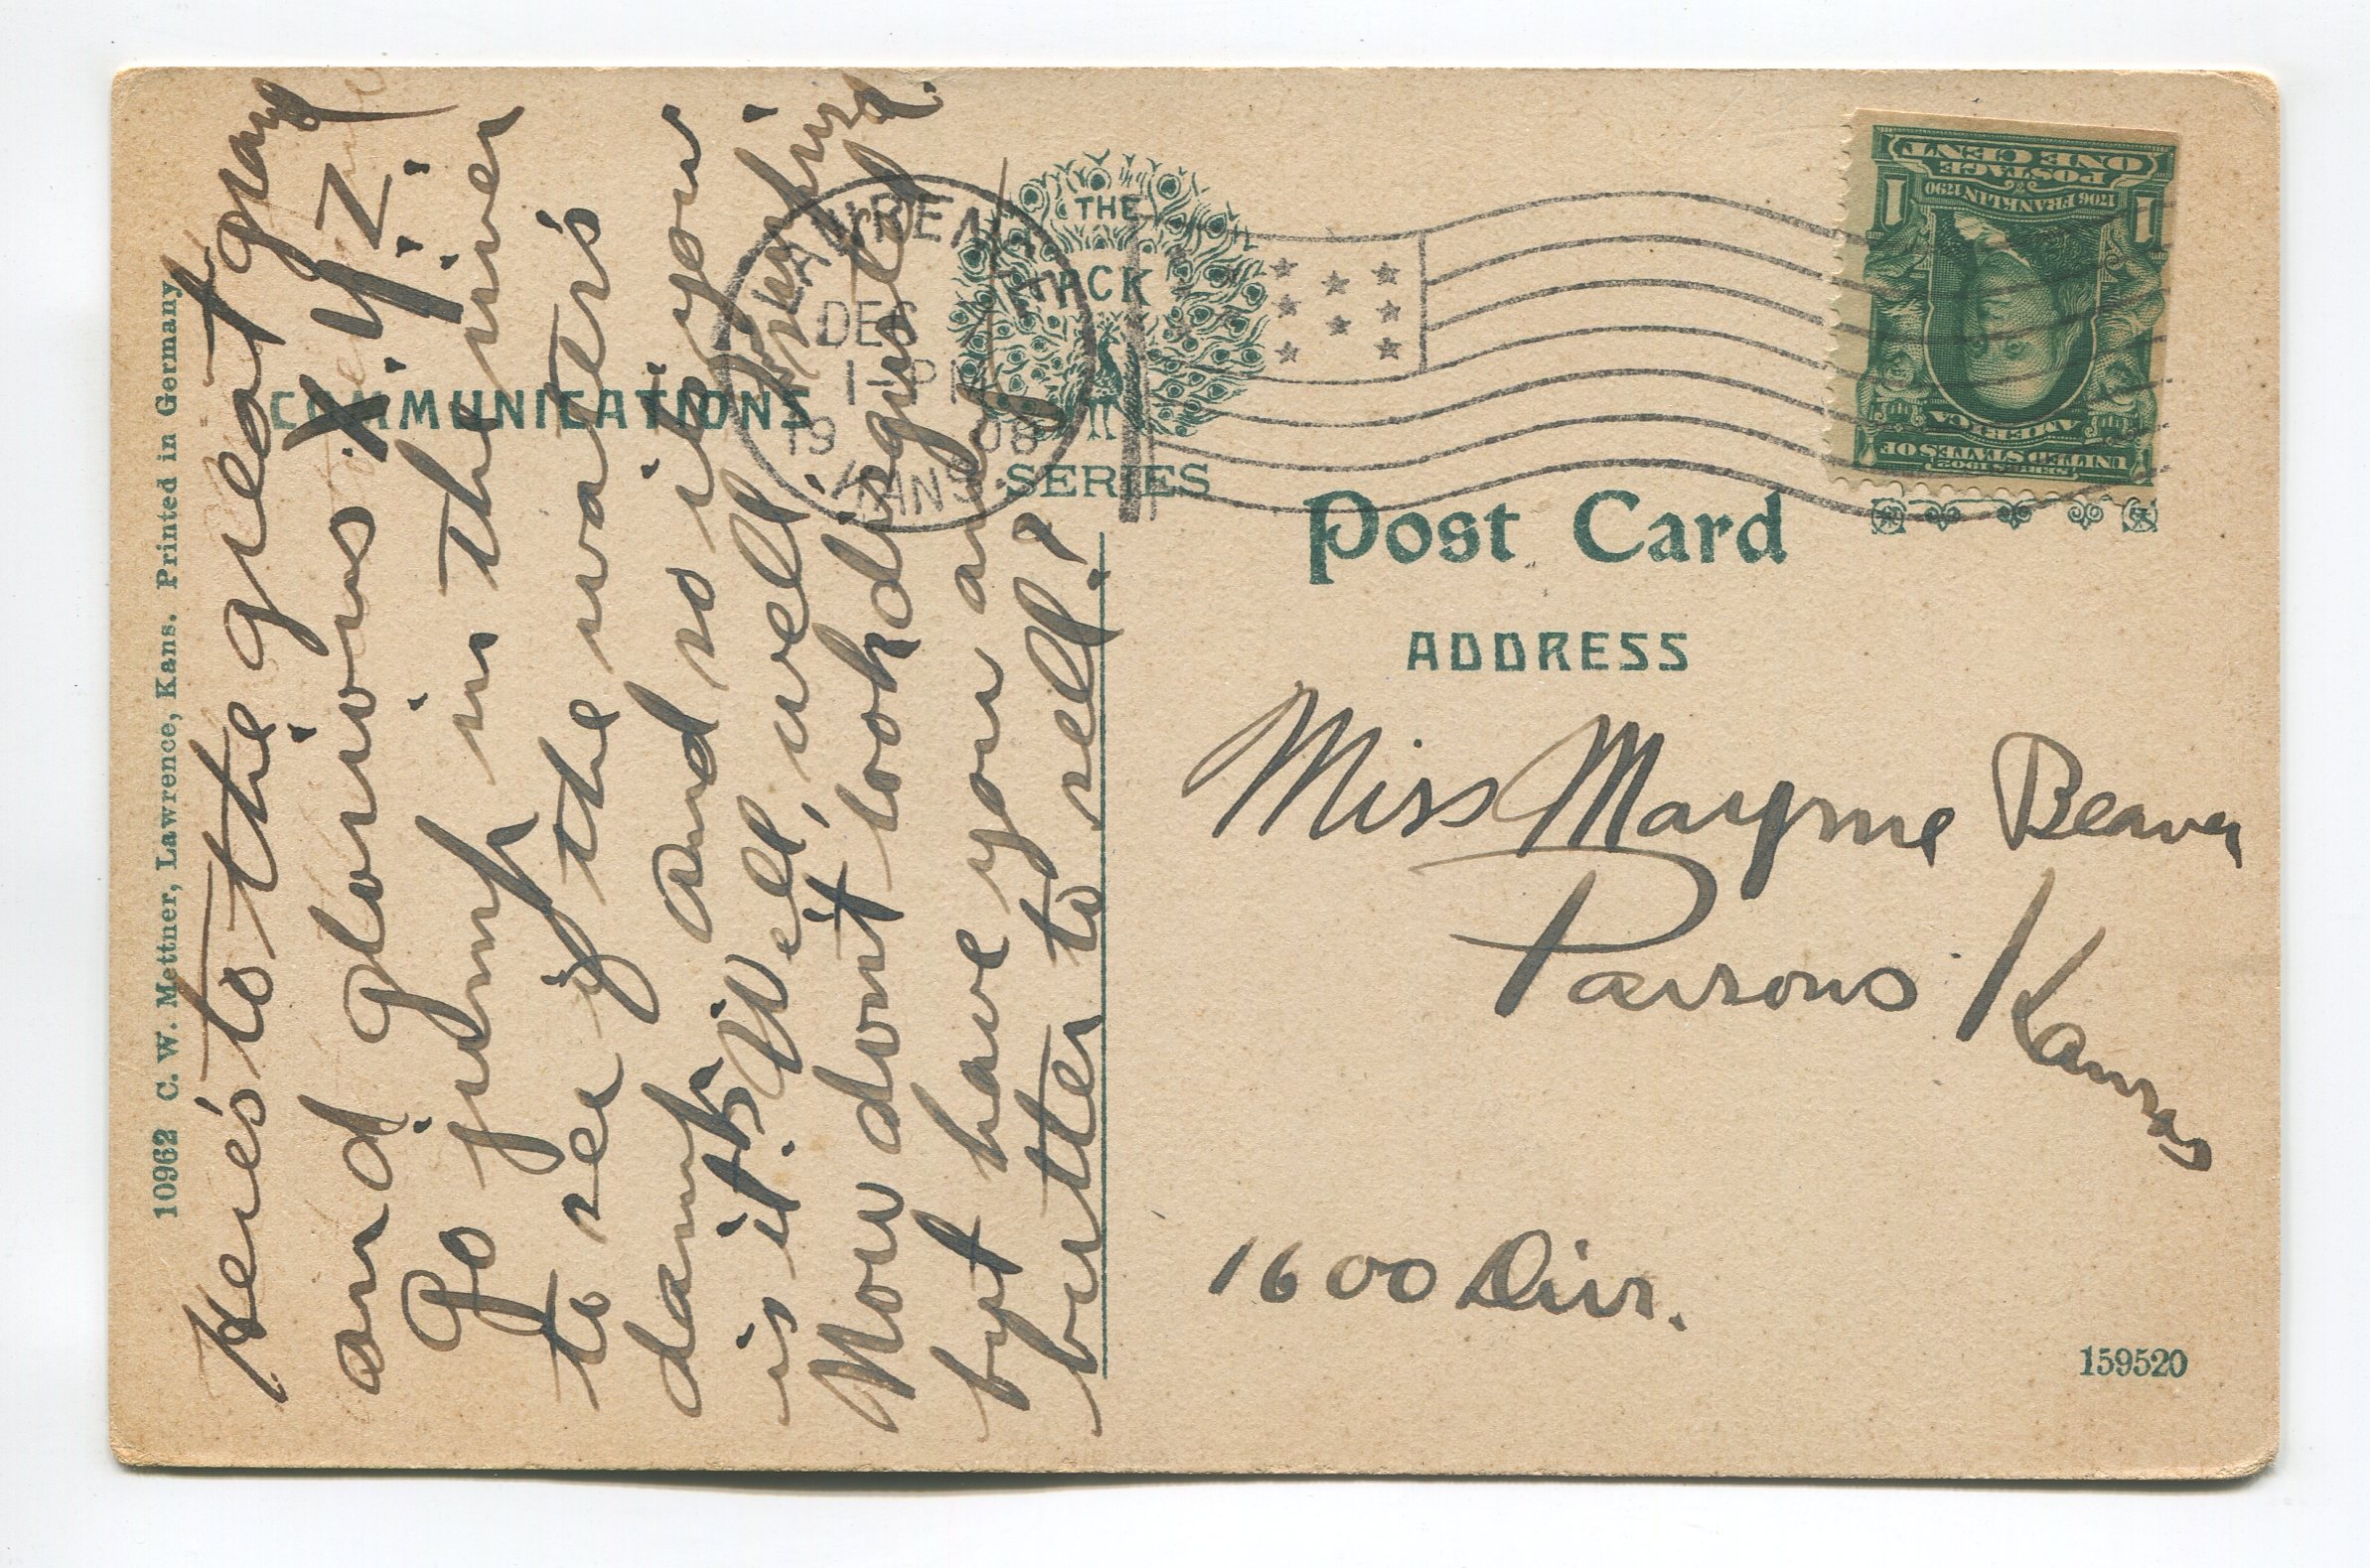 10962 C. W. Mettner, Lawrence, Kans. Printed in Germany
COMMUNICATIONS
Here's to the great grand
and glorious X.Y.Z.
Go jump in the river
to see if the water's
damp. And so is your
is it. Well, well
Now don't look disgusted.
but have you any
butter to sell?
LAWRENCE
DEC
1 PM
19 08
KANS.
THE
PCK
SERIES
Post Card
ADDRESS
Miss Mayme Beaver
Parsons
Kansas
1600 Dirr.
159520
ONE CENT
POSTAGE
1706 FRANKLIN 1790
1 1
UNITED STATES OF
AMERICA
SERIES 1902